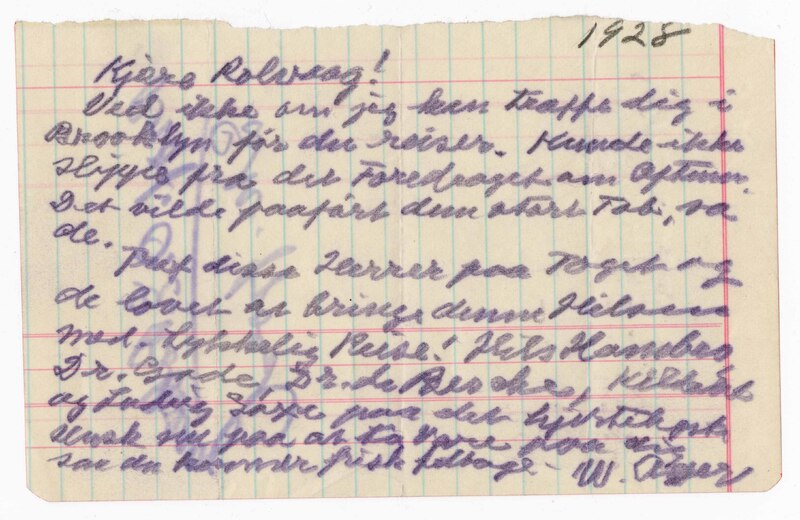 1928
Kjære Rolvaag!
Ved ikke om jeg kan træffe dig i
Brooklyn før du reiser. Kunde ikke
slippe fra det Foredraget om Aftenen.
Det vilde paaført dem stort Tab, sa
de.
Traf disse Herrer paa Toget og
de lovet at bringe denne Hilsen
med. Lykkelig Reise! Hils Hambro,
Dr. Gade, Dr. de Besche,
og Ludvig Saxe paa det hjerteligste
Husk nu paa at ta vare paa dig
saa du kommer frisk tilbage. W. Ager